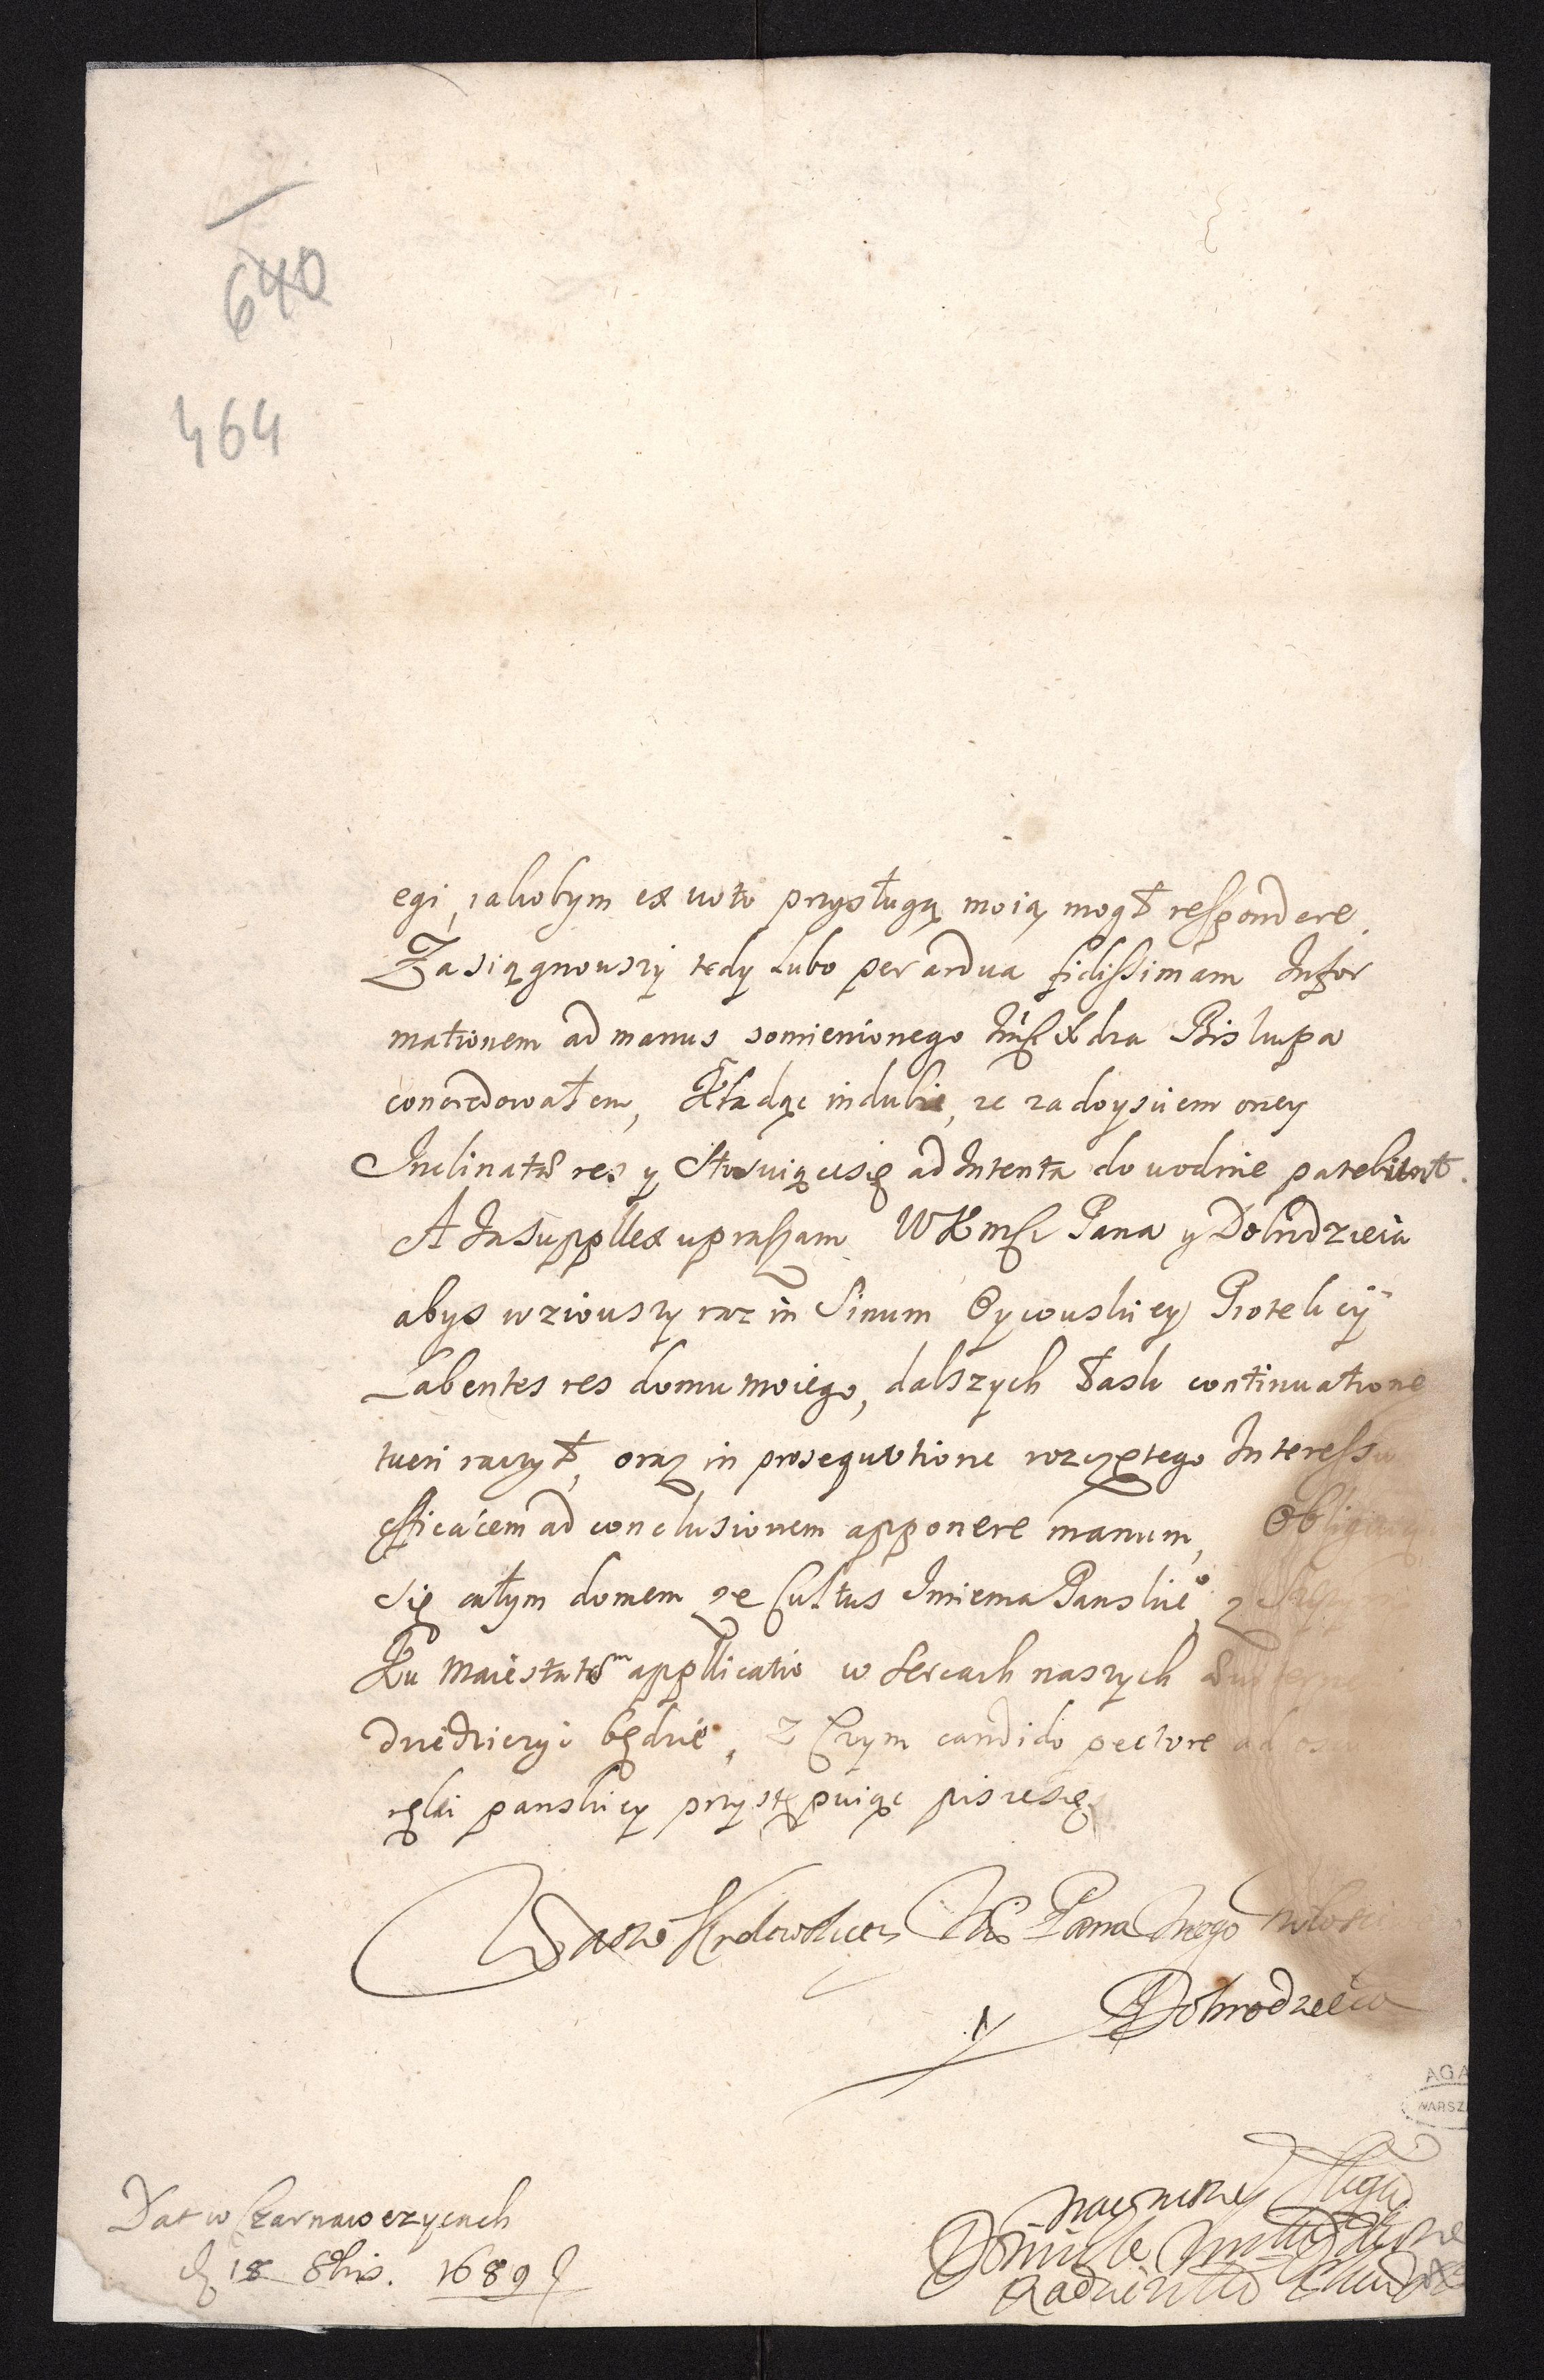 640
464
egi, iakobym ex voto przysługą moią mogł respondere.
Zasiągnowszy tedy lubo per ardua fidissimam Infor
mationem ad manus somienionego Imści Xdza Biskupa
concredowałem, Kładąc in dubie, ze za doysciem oney
Inclinatae res y stosuiącesię ad Intenta dowodnie patebunt.
A Ia supplex upraszam WKmści Pana y Dobrodzieia
abys wziowszy raz in Sinum Oycowskiey Protekcij
Labentes res domu moiego, dalszych łask continuatione
tueri raczył, oraz in prosequutione rozczętego Interessu
efficacem ad conclusionem apponere manum, Obliguię
się całym domem ze Cultus Imienia Panskieo, z
Ku Maiestatowi applicatio w sercach naszych
dziedziczyć będzie, z Czym candido pectore ad
ręki panskiey przystępuiąc piszesię
Waszey Krolewskiey Mći Pana Mego Miłosci
y Dobrodzieia
AGA
WARSZ
Dat w Czarnawczycach
d 18 8bris. 1689
naynizszy sługa
Dominik Mikołay
Radziwiłł